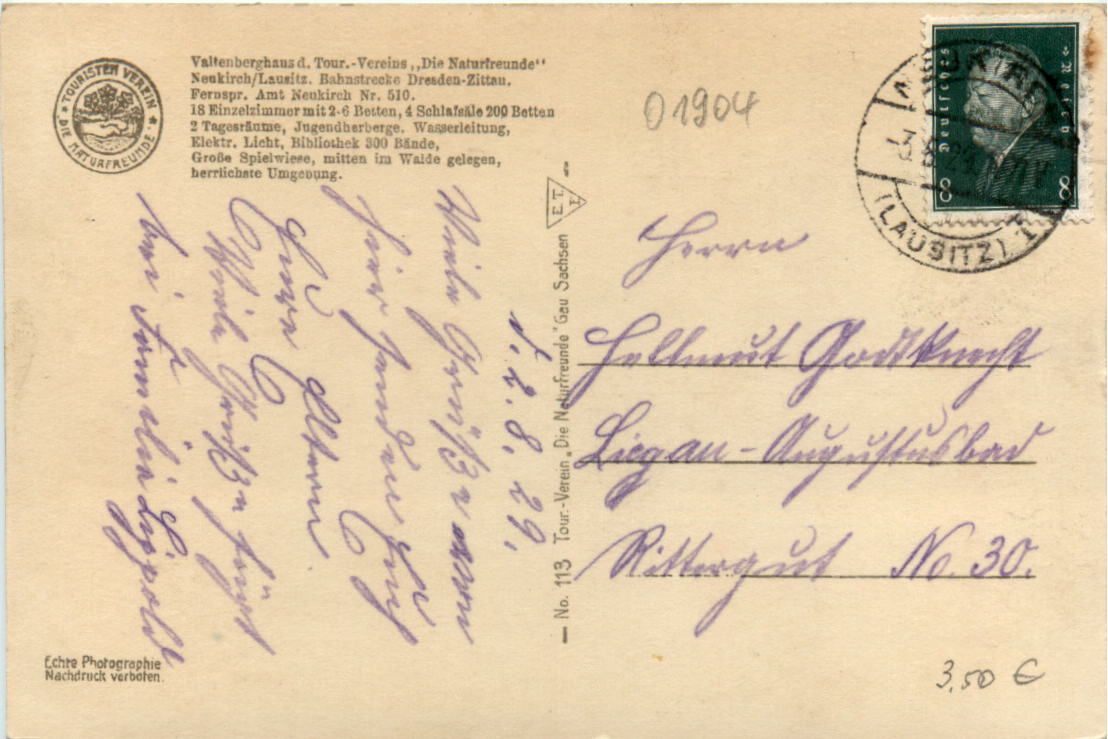 TOURISTEN VEREIN
DIE NATURFREUNDE
Valtenberghaus d. Tour.-Vereins „Die Naturfreunde“
Neukirch/Lausitz. Bahnstrecke Dresden-Zittau.
Fernspr. Amt Neukirch Nr. 510.
18 Einzelzimmer mit 2-6 Betten, 4 Schlafsäle 200 Betten
2 Tagesräume, Jugendherberge. Wasserleitung,
Elektr. Licht, Bibliothek 300 Bände,
Große Spielwiese, mitten im Walde gelegen,
herrlichste Umgebung.
01904
Deutsches Reich
8 8
(LAUSITZ) 1
d. 2. 8. 29.
Viele Grüße von
hier senden Euch
Eure Eltern
Viele Grüße
bei Familie Lippold
E.T.
No. 113 Tour.-Verein „Die Naturfreunde“ Gau Sachsen
Herrn
Hellmut Godtknecht
Liegau-Augustusbad
Rittergut No. 30.
Echte Photographie
Nachdruck verboten.
3,50 €